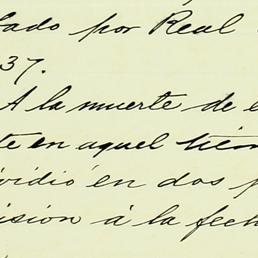 lado por Real
37.
A la muerte de e
te en aquel tiem
vidió en dos p
isión á la fech